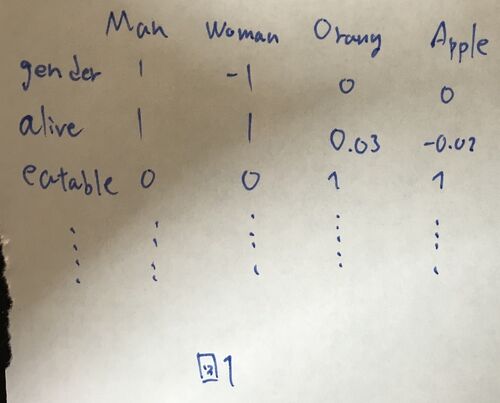 Man Woman Orang Apple
gender 1 -1 0 0
alive 1 1 0.03 -0.02
eatable 0 0 1 1
图1